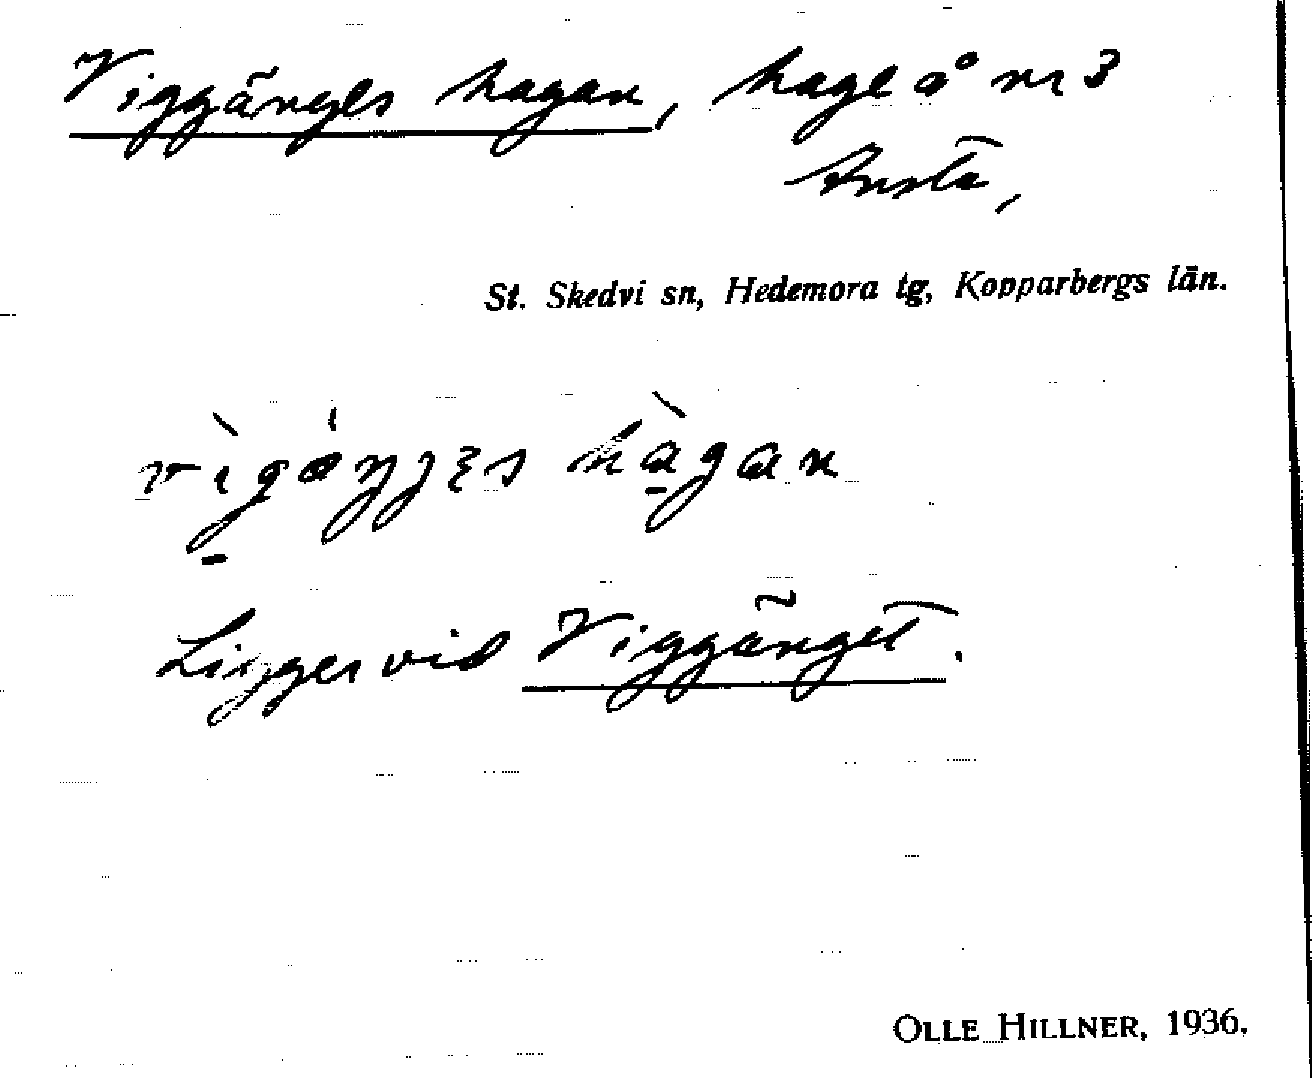 Viggänges hagan, hage å nr 3
Ansta,
St. Skedvi sn, Hedemora tg, Kopparbergs län.
Ligger vid Viggänget.
OLLE HILLNER, 1936.